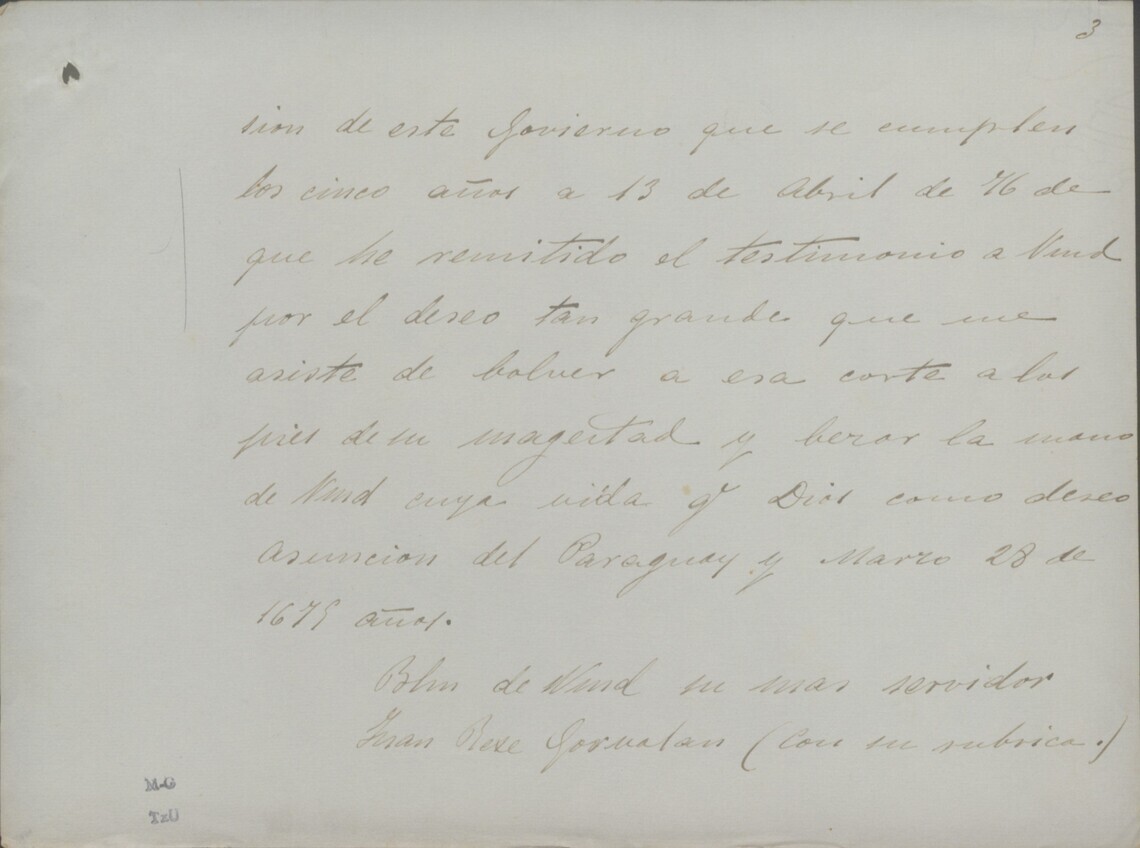 3
sion de este Govierno que se cumplen
los cinco años a 13 de Abril de 76 de
que he remitido el testimonio a Vmd
por el deseo tan grande que me
asiste de bolver a esa corte a los
pies de su magestad y bezar la mano
de Vmd cuya vida ge Dios como deseo
Asuncion del Paraguay y Marzo 28 de
1675 años.
Blm de Vmd su mas servidor
Juan Rexe Gorvalan (Con su rubrica.)
M-G
TzU